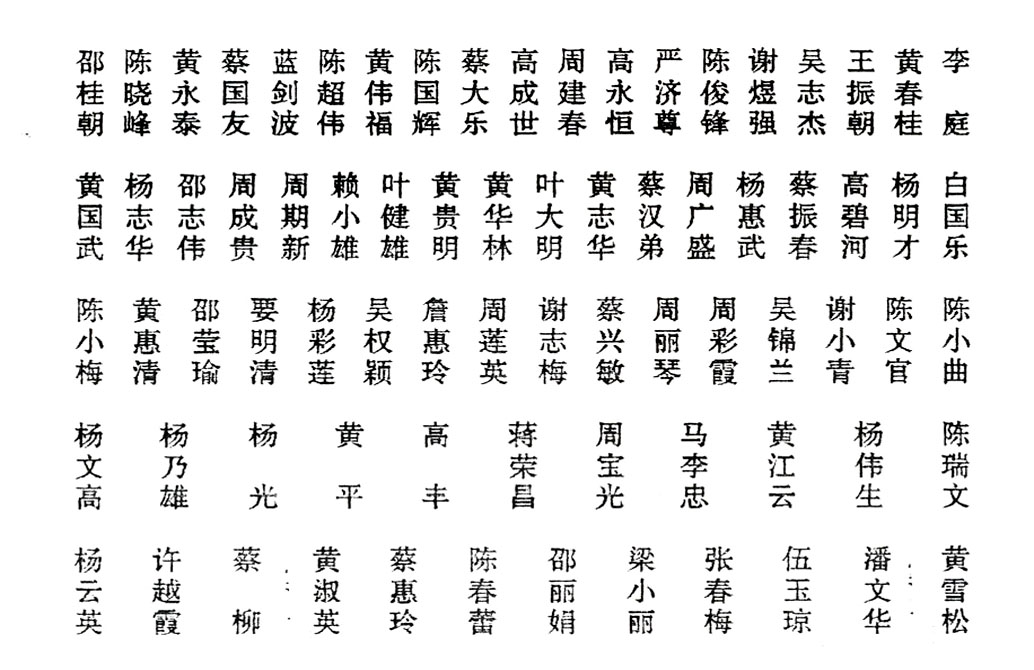 邵桂朝
陈晓峰
黄永泰
蔡国友
蓝剑波
陈超伟
黄伟福
陈国辉
蔡大乐
高成世
周建春
高永恒
严济尊
陈俊锋
谢煜强
吴志杰
王振朝
黄春桂
李庭
黄国武
杨志华
邵志伟
周成贵
周期新
赖小雄
叶健雄
黄贵明
黄华林
叶大明
黄志华
蔡汉弟
周广盛
杨惠武
蔡振春
高碧河
杨明才
白国乐
陈小梅
黄惠清
邵莹瑜
要明清
杨彩莲
吴权颖
詹惠玲
周莲英
谢志梅
蔡兴敏
周丽琴
周彩霞
吴锦兰
谢小青
陈文官
陈小曲
杨文高
杨乃雄
杨光
黄平
高丰
蒋荣昌
周宝光
马李忠
黄江云
杨伟生
陈瑞文
杨云英
许越霞
蔡柳
黄淑英
蔡惠玲
陈春蕾
邵丽娟
梁小丽
张春梅
伍玉琼
潘文华
黄雪松